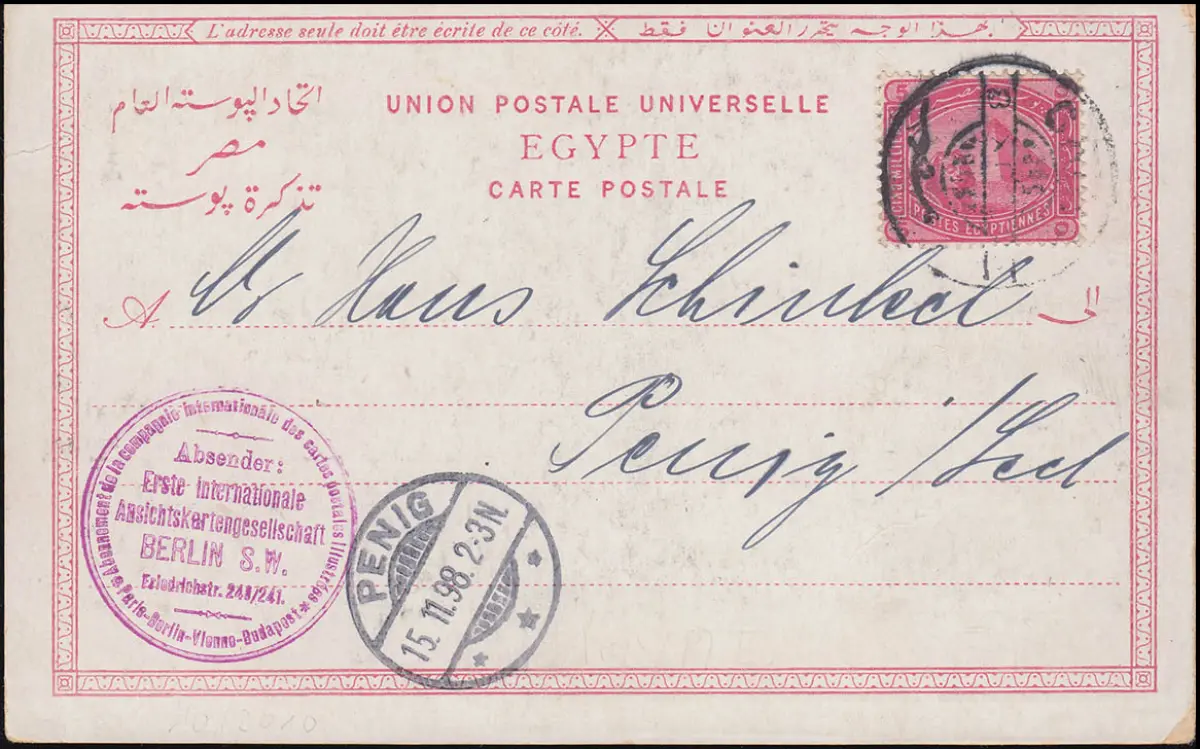 L'adresse seule doit être écrite de ce côté.
بهذا الوجه يتحرر العنوان فقط
اتحاد البوسته العام
مصر
تذكرة بوسته
UNION POSTALE UNIVERSELLE
EGYPTE
CARTE POSTALE
POSTES EGYPTIENNES
A Hans Schinkel الى
Penig
Abonnement de la compagnie internationale des cartes postales illustrées
Absender:
Erste Internationale
Ansichtskartengesellschaft
BERLIN S.W.
Friedrichstr.
Paris-Berlin-Vienne-Budapest
PENIG
15.11.98.2-3N.